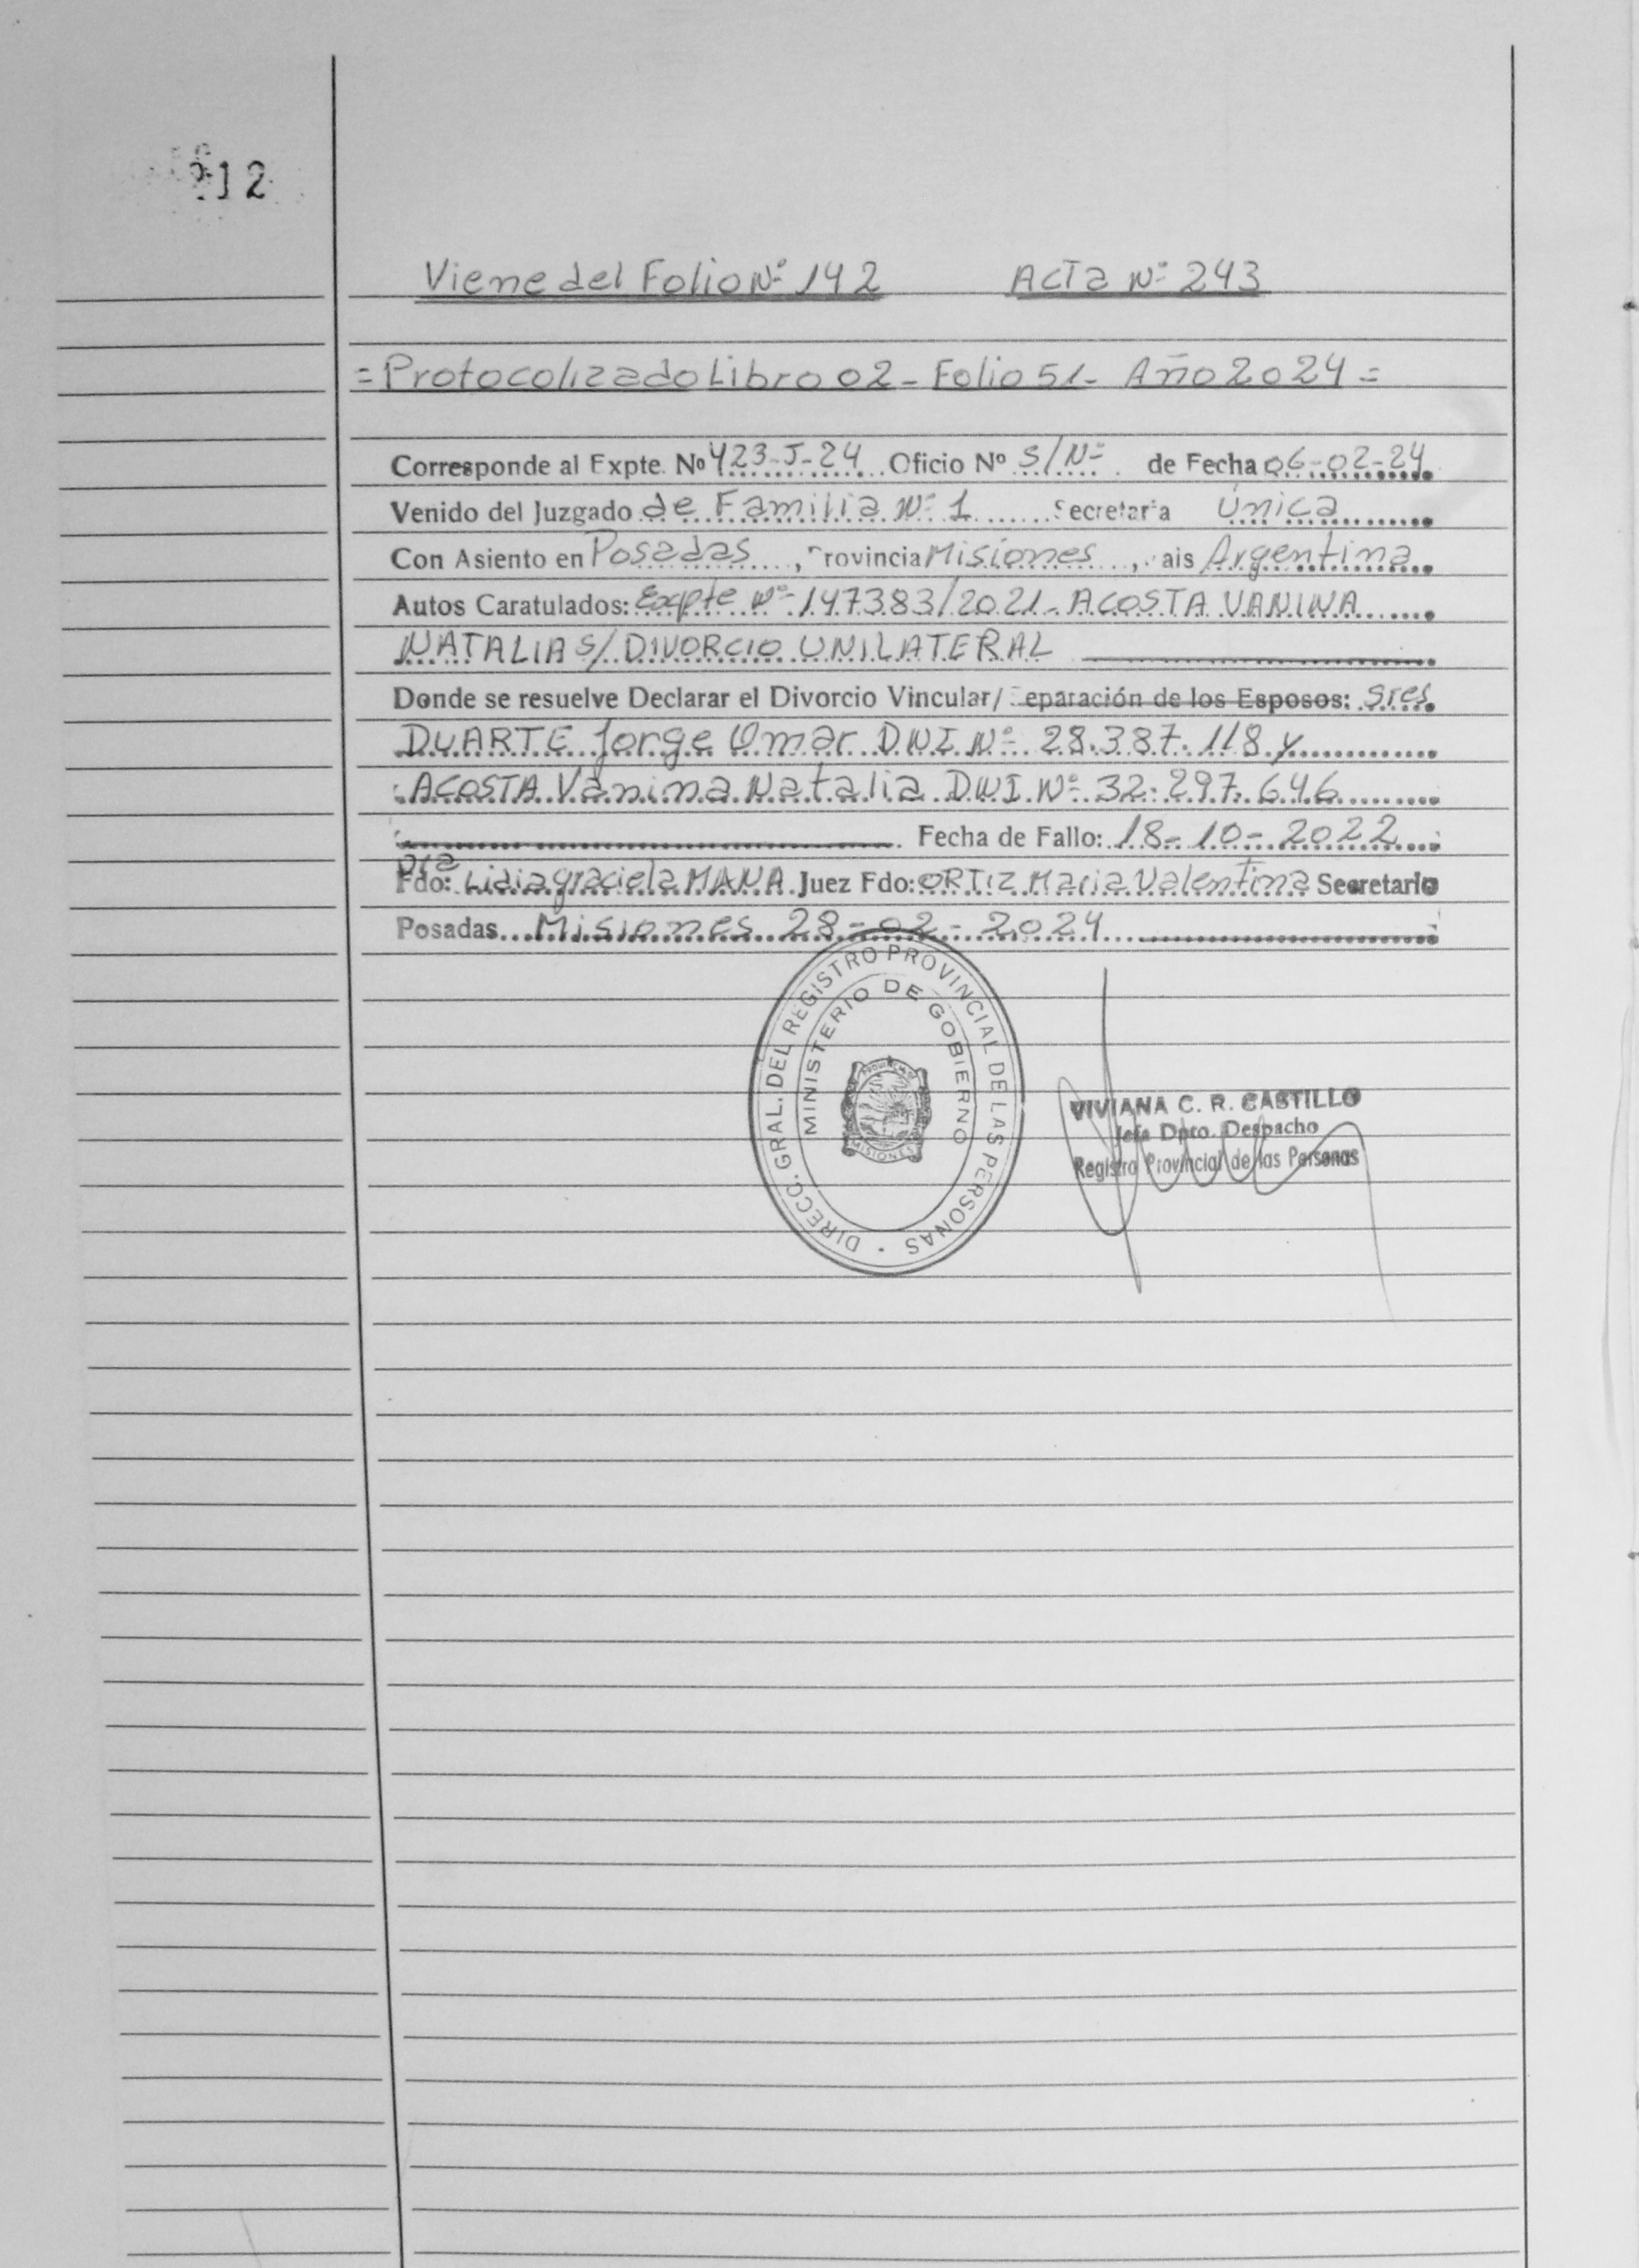 12
Viene del Folio Nº 142 Acta Nº 243
= Protocolizado Libro 02 - Folio 51 - Año 2024 =
Corresponde al Expte. Nº 423-J-24 Oficio Nº S/Nº de Fecha 06-02-24
Venido del Juzgado de Familia Nº 1 Secretaria Única
Con Asiento en Posadas, Provincia Misiones, Pais Argentina
Autos Caratulados: Expte Nº 147383/2021 - ACOSTA VANINA
NATALIA S/ DIVORCIO UNILATERAL
Donde se resuelve Declarar el Divorcio Vincular/ Separación de los Esposos: Sres
DUARTE Jorge Omar DNI Nº 28.387.118 y
ACOSTA Vanina Natalia DNI Nº 32.297.646
Fecha de Fallo: 18-10-2022
Fdo: Dra Lidia Graciela MANA Juez Fdo: ORTIZ Maria Valentina Secretario
Posadas Misiones 28-02-2024
DIRECC. GRAL. DEL REGISTRO PROVINCIAL DE LAS PERSONAS
MINISTERIO DE GOBIERNO
MISIONES
VIVIANA C. R. CASTILLO
Jefa Dpto. Despacho
Registro Provincial de las Personas